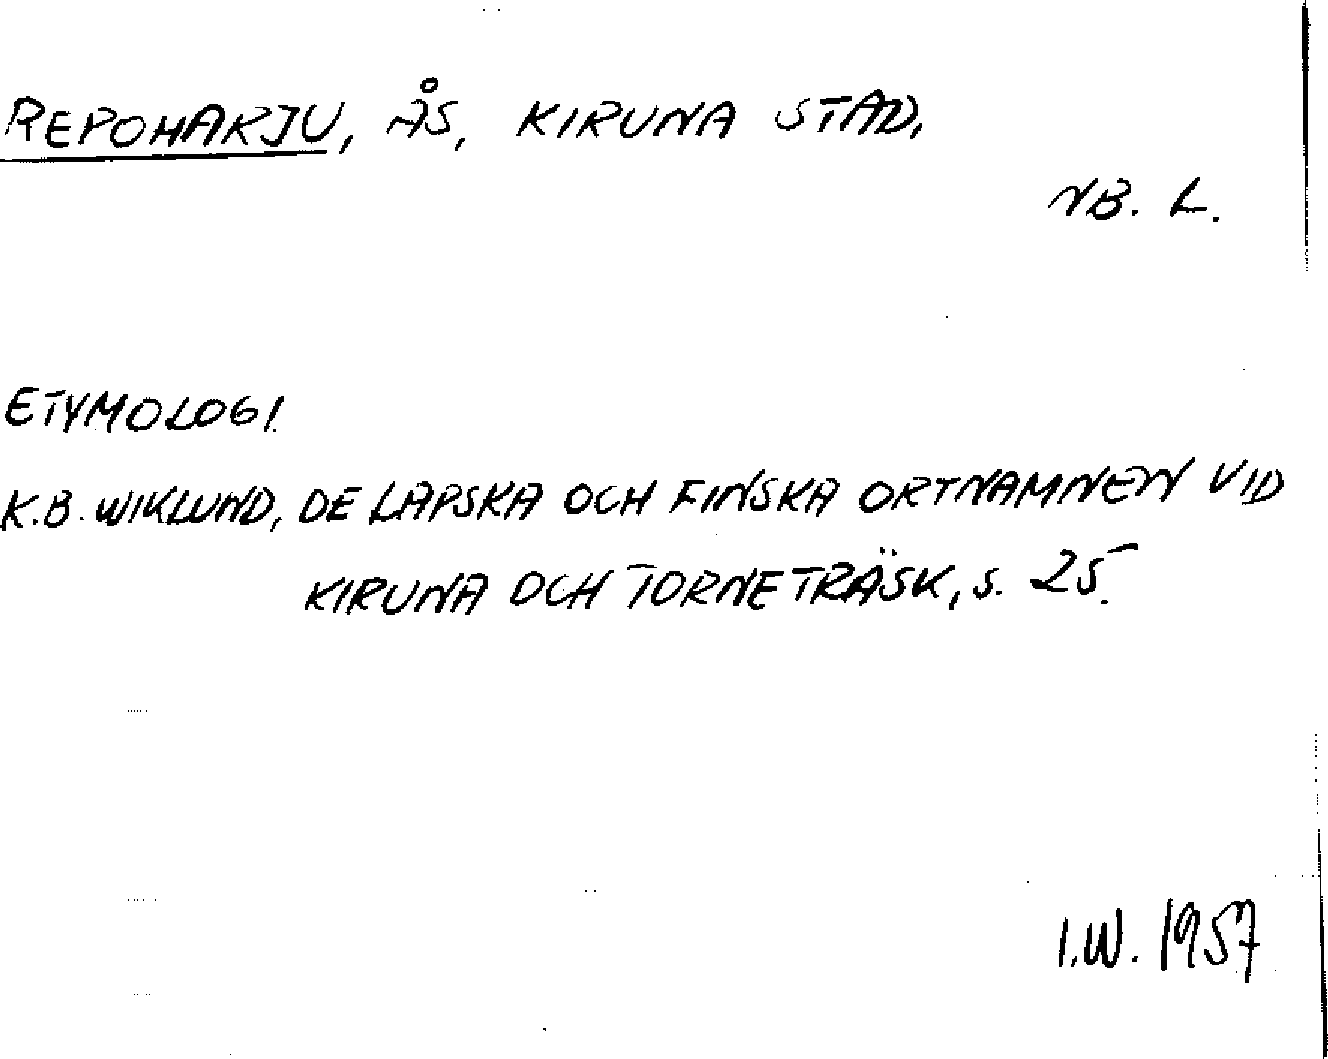 REPOHARJU, ÅS, KIRUNA STAD,
NB. L.
ETYMOLOGI
K.B. WIKLUND, DE LAPSKA OCH FINSKA ORTNAMNEN VID
KIRUNA OCH TORNETRÄSK, S. 25.
I.W. 1957